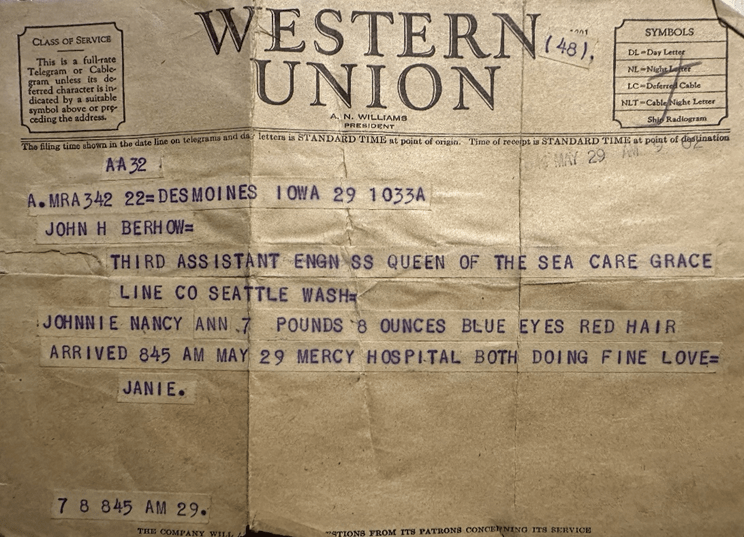 CLASS OF SERVICE
This is a full-rate
Telegram or Cable-
gram unless its de-
ferred character is in-
dicated by a suitable
symbol above or pre-
ceding the address.
WESTERN
UNION
A. N. WILLIAMS
PRESIDENT
(48).
SYMBOLS
DL=Day Letter
NL=Night Letter
LC=Deferred Cable
NLT=Cable Night Letter
Ship Radiogram
The filing time shown in the date line on telegrams and day letters is STANDARD TIME at point of origin. Time of receipt is STANDARD TIME at point of destination
MAY 29 AM
AA32
A.MRA342 22=DESMOINES IOWA 29 1033A
JOHN H BERHOW=
THIRD ASSISTANT ENGN SS QUEEN OF THE SEA CARE GRACE
LINE CO SEATTLE WASH=
JOHNNIE NANCY ANN 7 POUNDS 8 OUNCES BLUE EYES RED HAIR
ARRIVED 845 AM MAY 29 MERCY HOSPITAL BOTH DOING FINE LOVE=
JANIE.
7 8 845 AM 29.
THE COMPANY WILL STIONS FROM ITS PATRONS CONCERNING ITS SERVICE